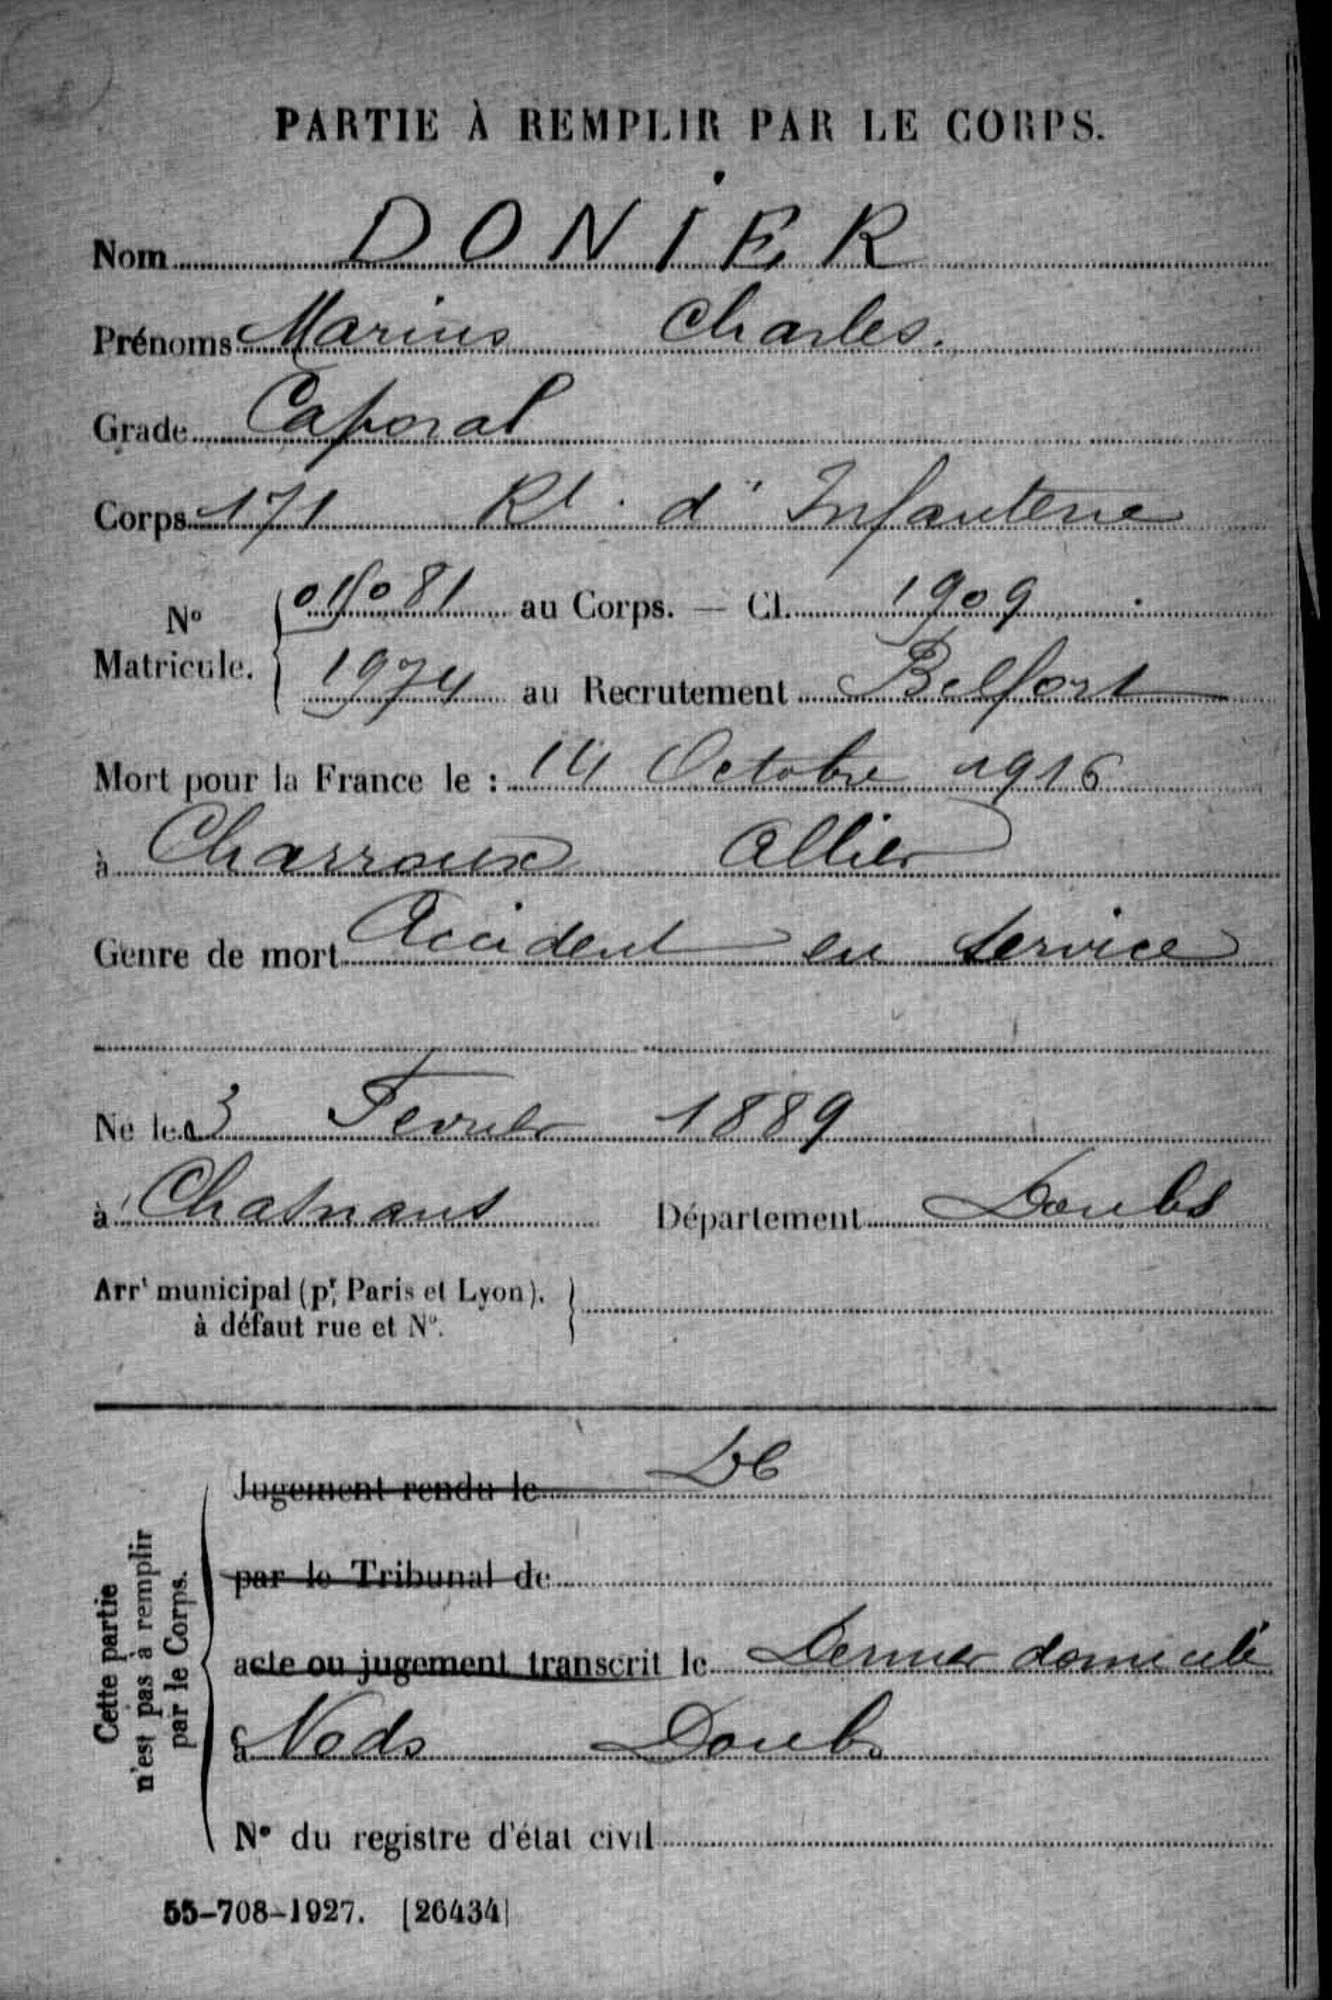 PARTIE À REMPLIR PAR LE CORPS.
Nom DONIER
Prénoms Marius Charles.
Grade Caporal
Corps 171 Rt. d'Infanterie
No Matricule. { 015081 au Corps. — Cl. 1909
1974 au Recrutement Belfort
Mort pour la France le : 14 Octobre 1916
à Charroux Allier
Genre de mort Accident en service
Né le 3 Fevrier 1889
à Chasnans Département Doubs
Arrt municipal (pr Paris et Lyon),
à défaut rue et No.
Cette partie
n'est pas à remplir
par le Corps.
Jugement rendu le
par le Tribunal de
acte ou jugement transcrit le Dernier domicile
à Nods Doubs
No du registre d'état civil
55-708-1927. [26434]